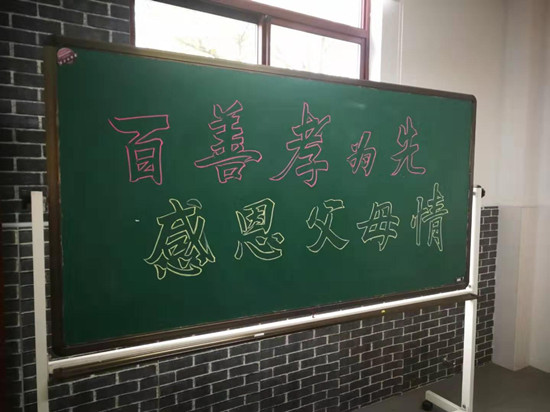 百善孝为先
感恩父母情